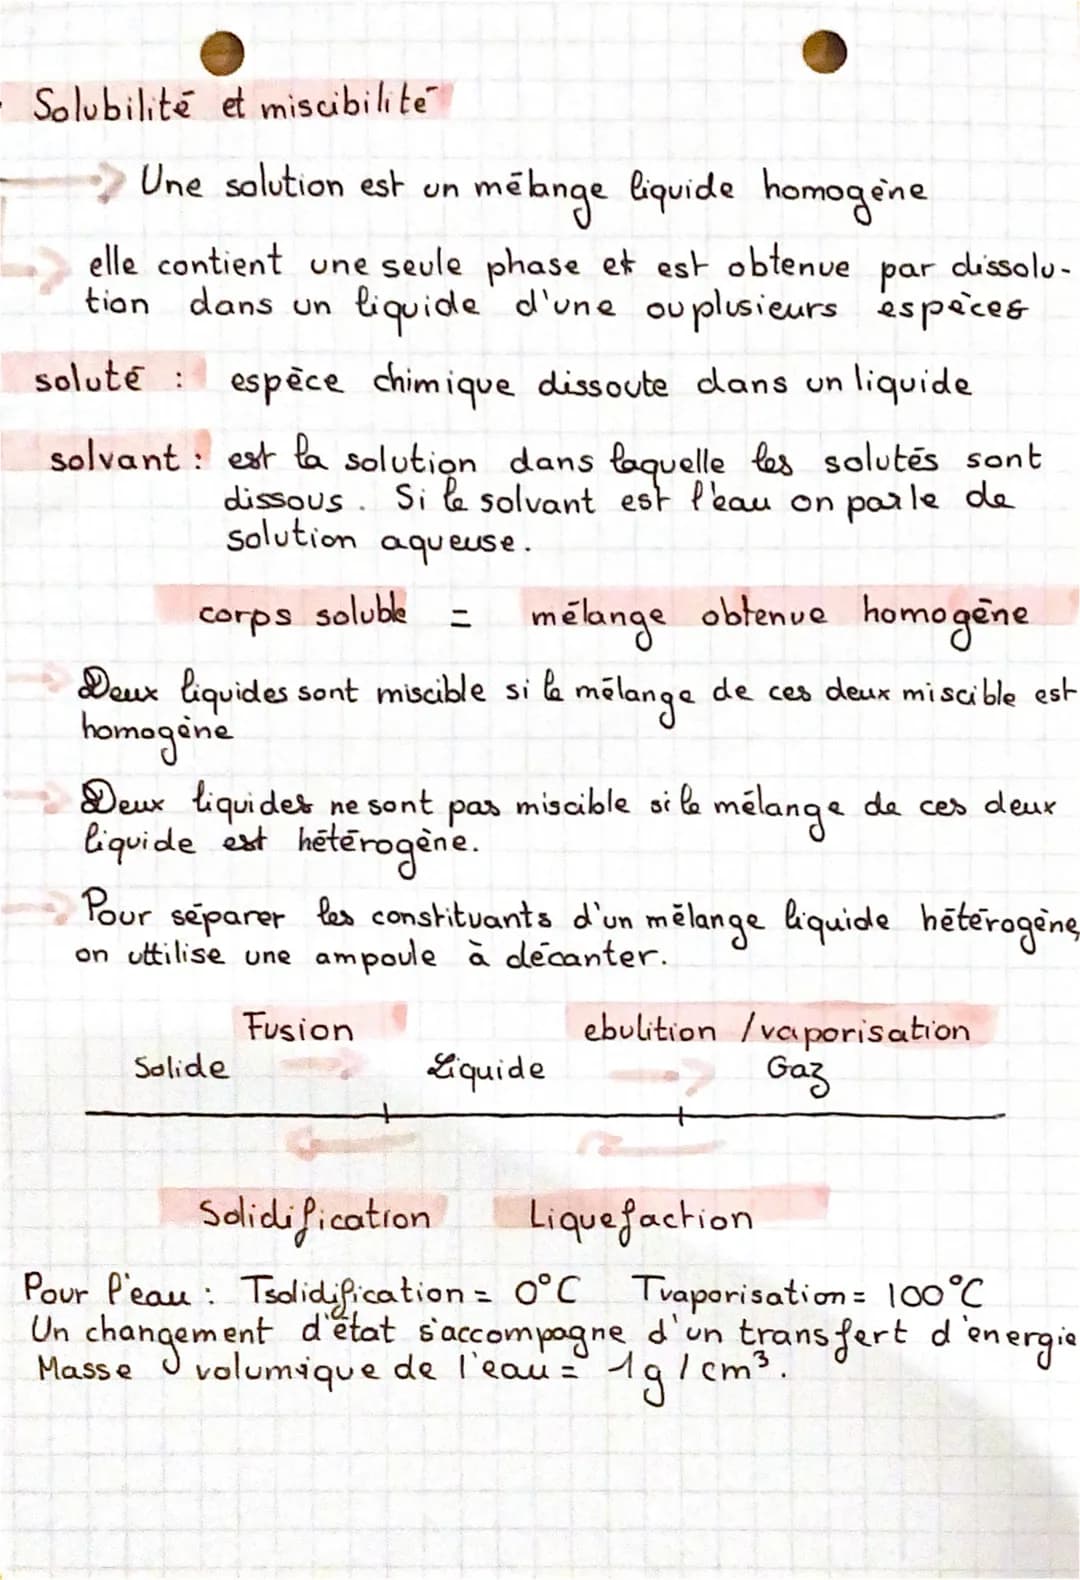 Solubilité et miscibilité
Une solution est un mélange liquide homogène
elle contient une seule phase et est obtenue par dissolu-
tion dans un liquide d'une ou plusieurs espèces
soluté : espèce chimique dissoute dans un liquide
solvant : est la solution dans laquelle les solutés sont
dissous. Si le solvant est l'eau on parle de
solution aqueuse.
corps soluble = mélange obtenue homogène
Deux liquides sont miscible si le mélange de ces deux miscible est
homogène
Deux liquides ne sont pas miscible si le mélange de ces deux
liquide est hétérogène.
Pour séparer les constituants d'un mélange liquide hétérogène,
on uttilise une ampoule à décanter.
Fusion ebulition / vaporisation
Solide Liquide Gaz
Solidification Liquefaction
Pour l'eau : Tsolidification = 0°C Tvaporisation = 100°C
Un changement d'état s'accompagne d'un transfert d'énergie
Masse volumique de l'eau = 1g/cm³.